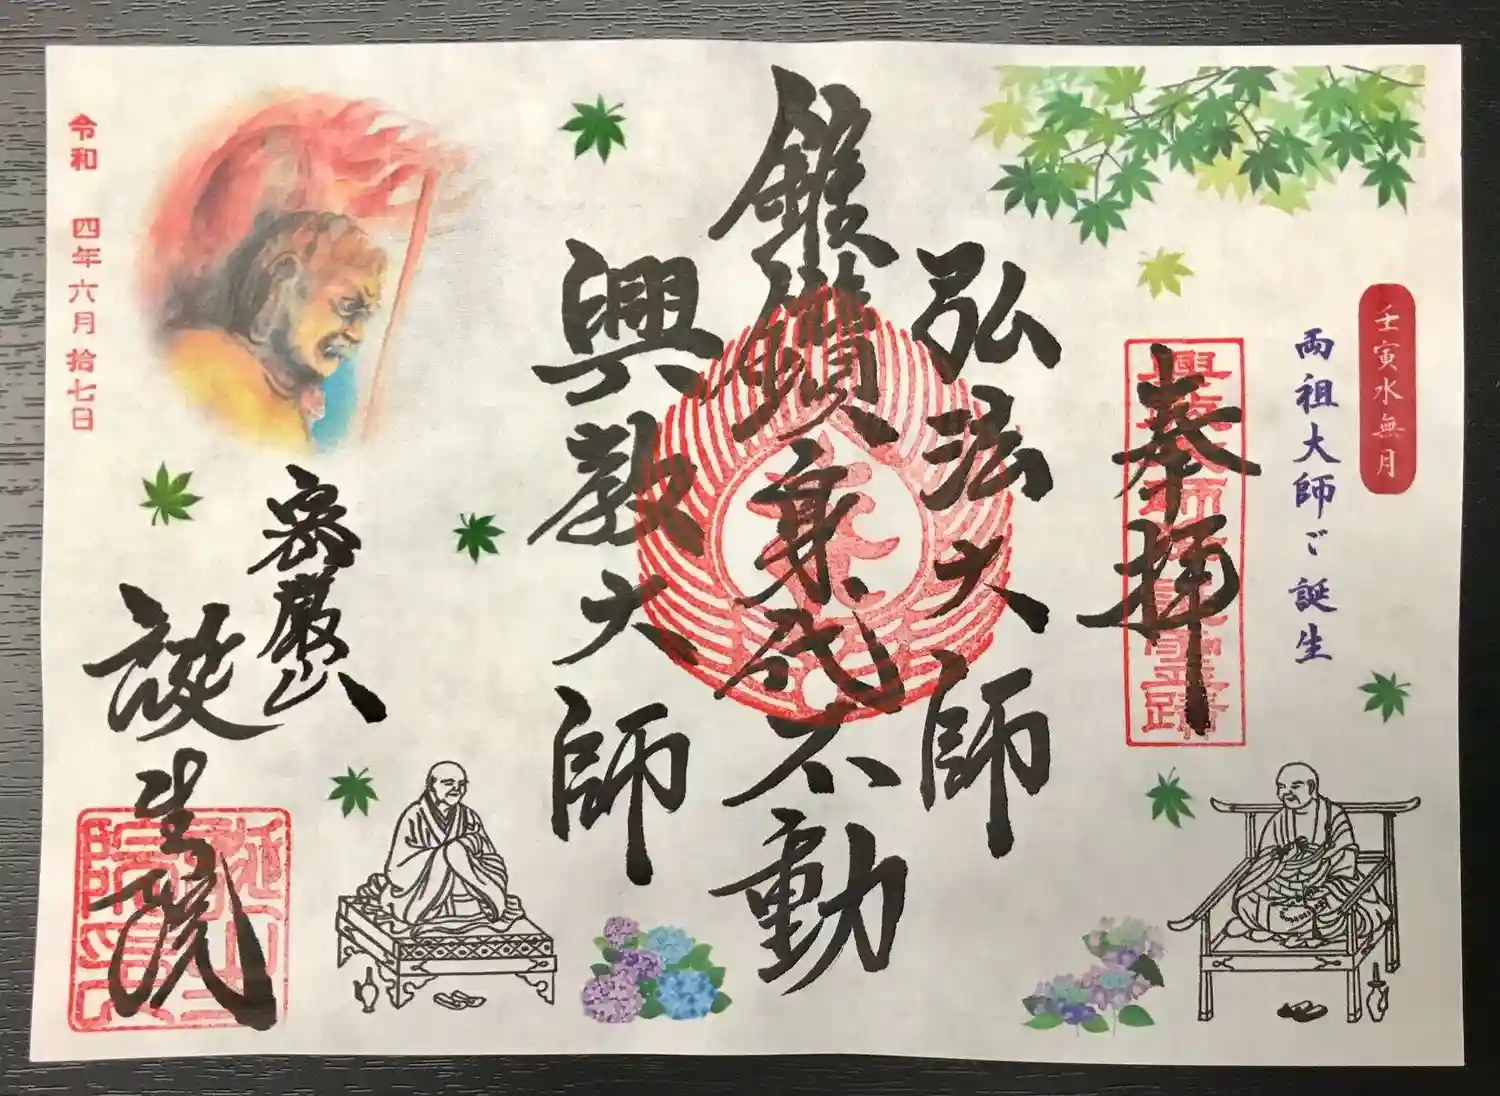 壬寅水無月
両祖大師ご誕生
奉拝
弘法大師
錐鑽身代不動
興教大師
密嚴山
誕生院
令和 四年六月拾七日